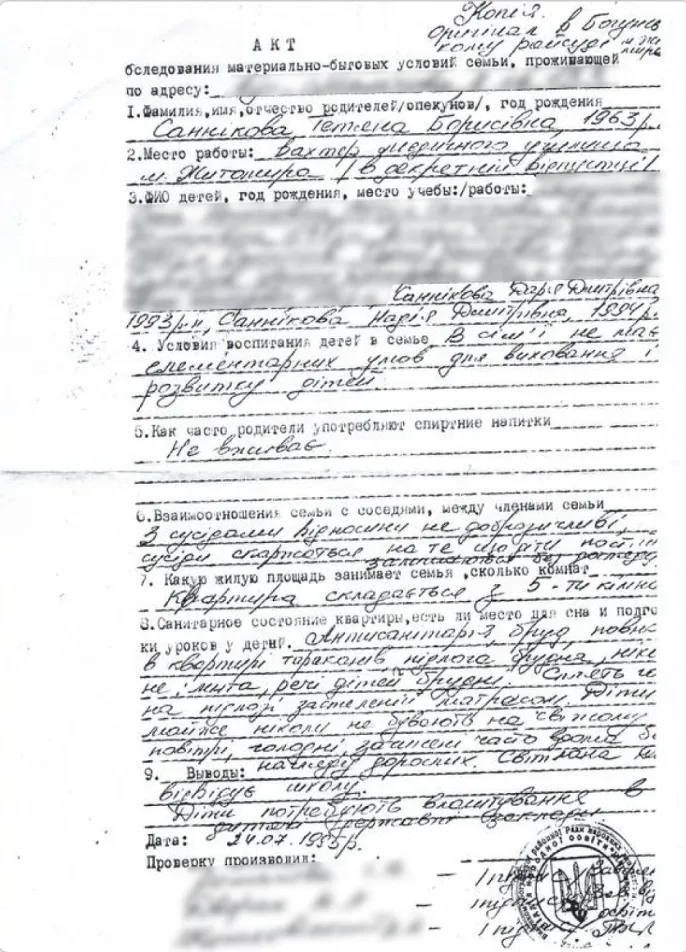 Копія.
оригінал в Богунсь
кому райсуді м. Жи
АКТ
бследования материально-бытовых условий семьи, проживающей
по адресу:
1.Фамилия,имя,отчество родителей/опекунов/, год рождения
Саннікова Тетяна Борисівна, 1963р.
2.Место работы: вахтер медичного училища
м. Житомира /в декретній відпустці/
3.ФИО детей, год рождения, место учебы:/работы:
Саннікова Дарія Дмитрівна
1993р.н, Саннікова Надія Дмитрівна, 1994р.
4. Условия воспитания детей в семье В сім'ї не має
елементарних умов для виховання і
розвитку дітей
5.Как часто родители употребляют спиртние напитки
Не вживає.
6.Взаимоотношения семьи с соседями, между членами семьи
З сусідами відносини не доброзичливі,
сусіди скаржаться на те що діти
залишаються без
7. Какую жилую площадь занимает семья ,сколько комнат
Квартира складається з 5-ти кімна
8.Санитарное состояние квартиры,есть ли место для сна и подго
ки уроков у детей. Антисанітарія, бруд, повно
в квартирі тараканів, підлога брудна,
не мита, речі дітей брудні. Сплять
на підлозі застеленій матрасом. Діти
майже ніколи не бувають на свіжому
повітрі, голодні, зачинені часто вдома бе
нагляду дорослих. Світлана не
9. Выводы:
відвідує школу.
Діти потребують влаштування в
дитячі державні заклади
Дата: 24.07.1995р.
Проверку произвели: